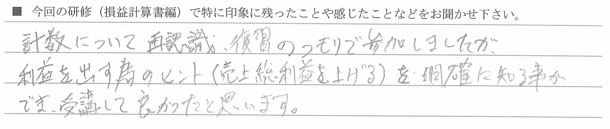 ■ 今回の研修（損益計算書編）で特に印象に残ったことや感じたことなどをお聞かせ下さい。
計数について再認識、復習のつもりで参加しましたが
利益を出す為のヒント（売上総利益を上げる）を明確に知る事が
でき、受講して良かったと思います。